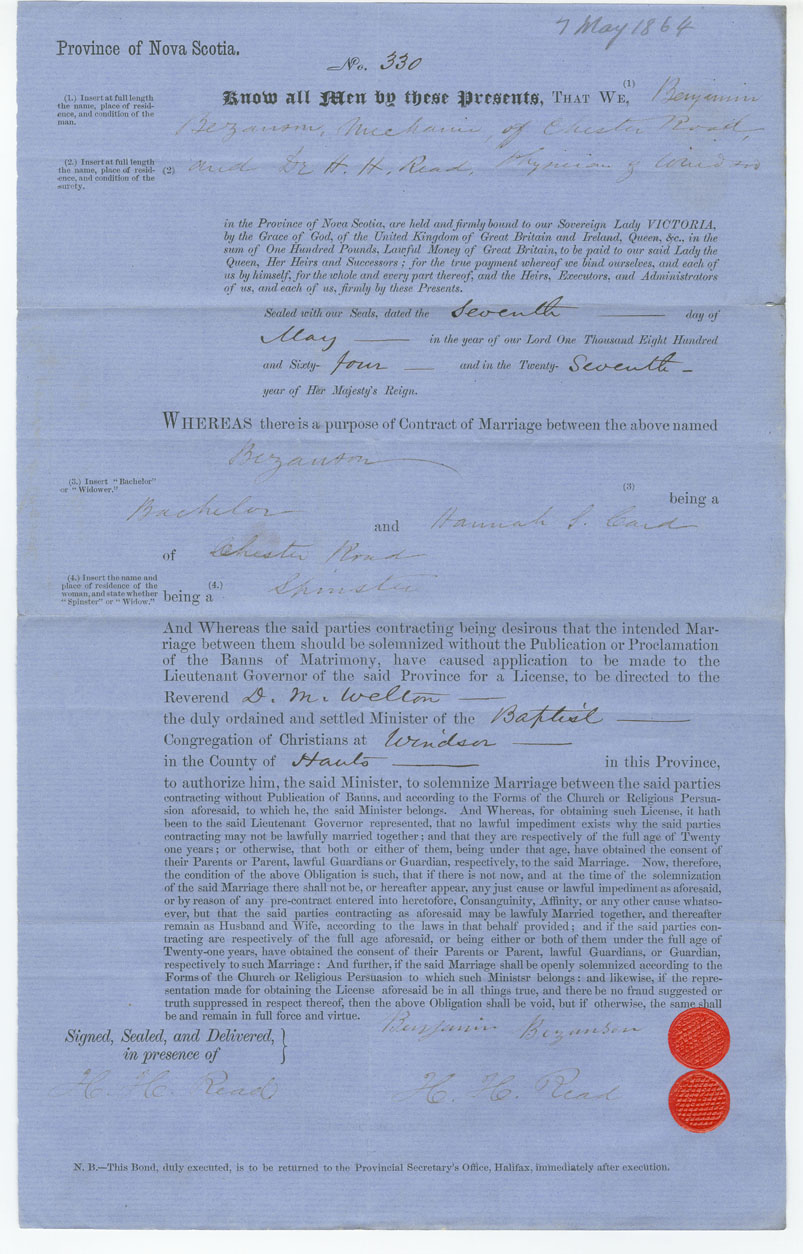 7 May 1864
Province of Nova Scotia.
No. 330
(1.) Insert at full length
the name, place of resid-
ence, and condition of the
man.
Know all Men by these Presents, THAT WE, (1) Benjamin
Bezanson, Mechanic, of Chester Road,
(2.) Insert at full length
the name, place of resid-
ence, and condition of the
surety.
(2) and Dr H. H. Read, Physician of Windsor
in the Province of Nova Scotia, are held and firmly bound to our Sovereign Lady VICTORIA,
by the Grace of God, of the United Kingdom of Great Britain and Ireland, Queen, &c., in the
sum of One Hundred Pounds, Lawful Money of Great Britain, to be paid to our said Lady the
Queen, Her Heirs and Successors; for the true payment whereof we bind ourselves, and each of
us by himself, for the whole and every part thereof, and the Heirs, Executors, and Administrators
of us, and each of us, firmly by these Presents.
Sealed with our Seals, dated the Seventh day of
May in the year of our Lord One Thousand Eight Hundred
and Sixty- four and in the Twenty- Seventh
year of Her Majesty's Reign.
WHEREAS there is a purpose of Contract of Marriage between the above named
Bezanson
(3.) Insert "Bachelor"
or "Widower."
(3) being a
Bachelor and Hannah S. Card
of Chester Road
(4.) Insert the name and
place of residence of the
woman, and state whether
"Spinster" or "Widow."
being a (4.) Spinster
And Whereas the said parties contracting being desirous that the intended Mar-
riage between them should be solemnized without the Publication or Proclamation
of the Banns of Matrimony, have caused application to be made to the
Lieutenant Governor of the said Province for a License, to be directed to the
Reverend D. M. Welton
the duly ordained and settled Minister of the Baptist
Congregation of Christians at Windsor
in the County of Hants in this Province,
to authorize him, the said Minister, to solemnize Marriage between the said parties
contracting without Publication of Banns, and according to the Forms of the Church or Religious Persua-
sion aforesaid, to which he, the said Minister belongs. And Whereas, for obtaining such License, it hath
been to the said Lieutenant Governor represented, that no lawful impediment exists why the said parties
contracting may not be lawfully married together; and that they are respectively of the full age of Twenty
one years; or otherwise, that both or either of them, being under that age, have obtained the consent of
their Parents or Parent, lawful Guardians or Guardian, respectively, to the said Marriage. Now, therefore,
the condition of the above Obligation is such, that if there is not now, and at the time of the solemnization
of the said Marriage there shall not be, or hereafter appear, any just cause or lawful impediment as aforesaid,
or by reason of any pre-contract entered into heretofore, Consanguinity, Affinity, or any other cause whatso-
ever, but that the said parties contracting as aforesaid may be lawfuly Married together, and thereafter
remain as Husband and Wife, according to the laws in that behalf provided; and if the said parties con-
tracting are respectively of the full age aforesaid, or being either or both of them under the full age of
Twenty-one years, have obtained the consent of their Parents or Parent, lawful Guardians, or Guardian,
respectively to such Marriage: And further, if the said Marriage shall be openly solemnized according to the
Forms of the Church or Religious Persuasion to which such Minister belongs: and likewise, if the repre-
sentation made for obtaining the License aforesaid be in all things true, and there be no fraud suggested or
truth suppressed in respect thereof, then the above Obligation shall be void, but if otherwise, the same shall
be and remain in full force and virtue.
Benjamin Bezanson
Signed, Sealed, and Delivered,
in presence of
H. H. Read H. H. Read
N. B.—This Bond, duly executed, is to be returned to the Provincial Secretary's Office, Halifax, immediately after execution.